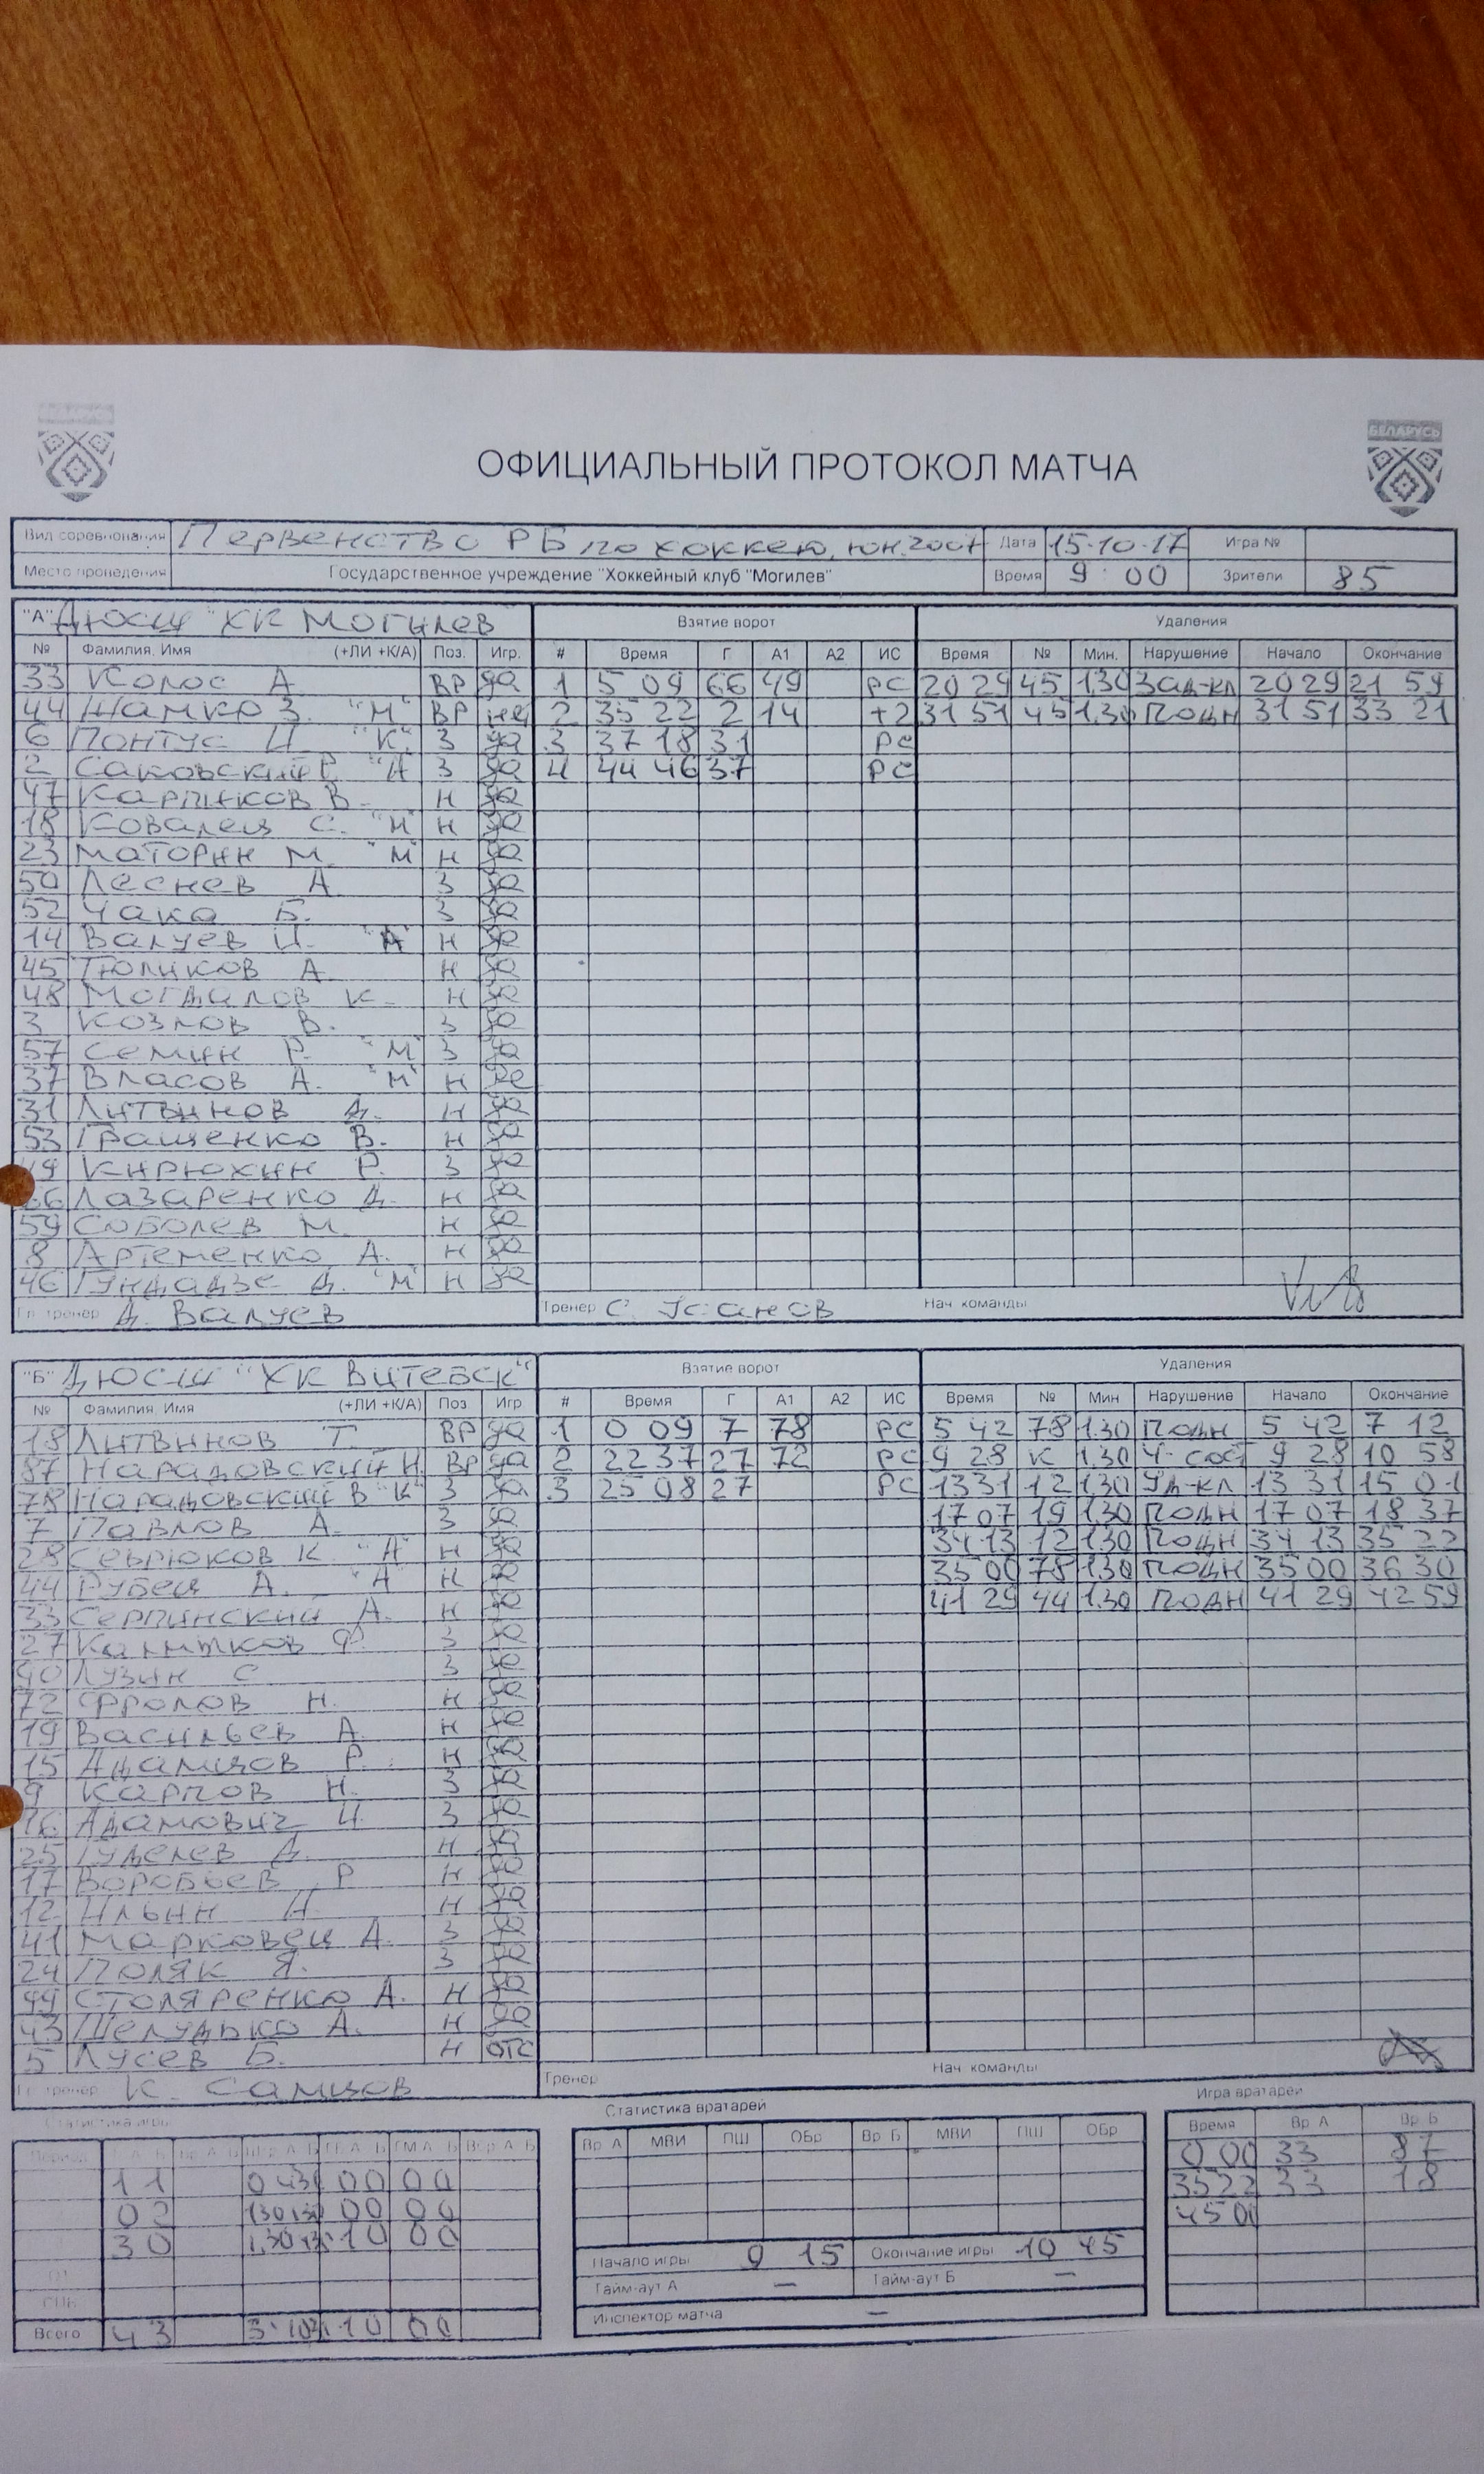 БЕЛАРУСЬ
ОФИЦИАЛЬНЫЙ ПРОТОКОЛ МАТЧА
Вид соревнования Первенство РБ по хоккею, юн. 2007 Дата 15-10-17 Игра №
Место проведения Государственное учреждение "Хоккейный клуб "Могилев" Время 9 00 Зрители 85
"А" ДЮСШ "ХК Могилев Взятие ворот Удаления
№ Фамилия, Имя (+ЛИ +К/А) Поз. Игр. # Время Г А1 А2 ИС Время № Мин. Нарушение Начало Окончание
33 Колос А ВР да 1 5 09 66 49 РС 20 29 45 1.30 Зад-кл 20 29 21 59
44 Жамко З. "М" ВР не 2 35 22 2 14 +2 31 51 45 1.30 Подн 31 51 33 21
6 Понтус И. "К" З да 3 37 18 31 РС
2 Саковский Р. "А З да 4 44 46 37 РС
47 Карпиков В. Н да
18 Ковалец С. "Н" Н да
23 Маторин М. "М" Н да
50 Леснев А. З да
52 Чако Б. З да
14 Валуев И. "А" Н да
45 Тюликов А. Н да
48 Могдалов К. Н да
3 Козлов В. З да
57 Семин Р. "М" З да
37 Власов А. "М" Н не
31 Литвинов Д. Н да
53 Гращенко В. Н да
49 Кирюхин Р. З да
66 Лазаренко Д. Н да
59 Соболев М. Н да
8 Артеменко А. Н да
46 Гундадзе Д. "М" Н да
Гл. тренер Д. Валуев Тренер С. Усанов Нач. команды
"Б" ДЮСШ "ХК Витебск" Взятие ворот Удаления
№ Фамилия, Имя (+ЛИ +К/А) Поз Игр # Время Г А1 А2 ИС Время № Мин Нарушение Начало Окончание
18 Литвинов Т ВР да 1 0 09 7 78 РС 5 42 78 1.30 Подн 5 42 7 12
87 Нарадовский Н. ВР да 2 22 37 27 72 РС 9 28 К 1.30 Ч-сос 9 28 10 58
78 Нарадовский В "К" З да 3 25 08 27 РС 13 31 12 1.30 Уд-кл 13 31 15 01
7 Павлов А. З да 17 07 19 1.30 Подн 17 07 18 37
28 Севрюков К "А" Н да 34 13 12 1.30 Подн 34 13 35 22
44 Рубец А. "А Н да 35 00 78 1.30 Подн 35 00 36 30
33 Серпинский А. Н да 41 29 44 1.30 Подн 41 29 42 59
27 Калитков Ф. З да
90 Лузин С З да
72 Фролов Н. Н да
19 Васильев А. Н да
15 Адамцов Р. Н да
9 Карпов Н. З да
16 Адамович И. З да
25 Гуделев Д. Н да
17 Воробьев Р Н да
12 Ильин И Н да
41 Марковец А. З да
24 Поляк Я. З да
99 Столяренко А. Н да
43 Шелудько А. Н да
5 Лусев Б. Н отс
Гл. тренер К. Самцов Тренер Нач. команды
Статистика игры Статистика вратарей Игра вратарей
Период Вр. А МВИ ПШ ОБр Вр. Б МВИ ПШ ОБр Время Вр. А Вр. Б
1 1 0 0 0 0 0 00 33 87
0 2 0 0 0 0 35 22 33 18
3 0 1 0 0 0 45 00
Начало игры 9 15 Окончание игры 10 45
Тайм-аут А — Тайм-аут Б —
Инспектор матча —
Всего 4 3 1 0 0 0